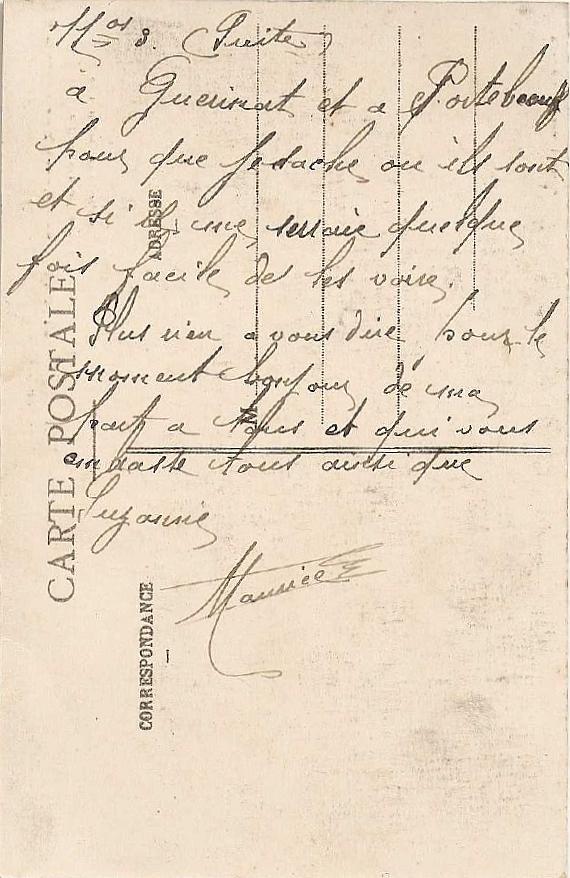 Nos 3. (Suite)
à Guerinat et a Porteboeuf
pour que je sache ou ils sont
et si il me serraie quelque
fois facile de les voire.
Plus rien a vous dire pour le
moment bonjour de ma
part a tous et qui vous
emrasse tous ainsi que
Suzanne
Maurice
CARTE POSTALE
ADRESSE
M
CORRESPONDANCE